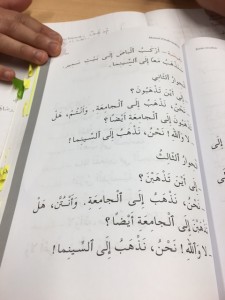 أَرْكَبُ الْبَاصَ إِلَى
نَذْهَبُ مَعًا إِلَى السِّينِما.
الثَّانِي
إِلَى أَيْنَ تَذْهَبُونَ؟
نَحْنُ، نَذْهَبُ إِلَى ٱلْجَامِعَةِ. وَأَنْتُمْ، هَلْ
تَذْهَبُونَ إِلَى ٱلْجَامِعَةِ أَيْضًا؟
لا وَٱللَّهِ! نَحْنُ، نَذْهَبُ إِلَى ٱلسِّينِما!
ٱلثَّالِثُ
إِلَى أَيْنَ تَذْهَبْنَ؟
نَحْنُ، نَذْهَبُ إِلَى ٱلْجَامِعَةِ. وَأَنْتُنَّ، هَلْ
تَذْهَبْنَ إِلَى ٱلْجَامِعَةِ أَيْضًا؟
لا وَٱللَّهِ! نَحْنُ، نَذْهَبُ إِلَى ٱلسِّينِما!